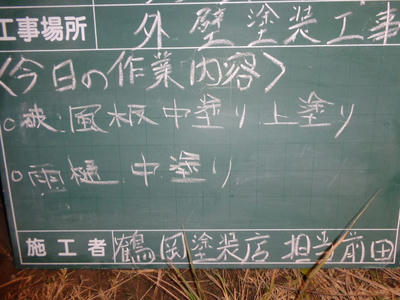 工事場所 外壁塗装工事
〈今日の作業内容〉
○破風板中塗り上塗り
○雨樋 中塗り
施工者 鶴岡塗装店 担当前田